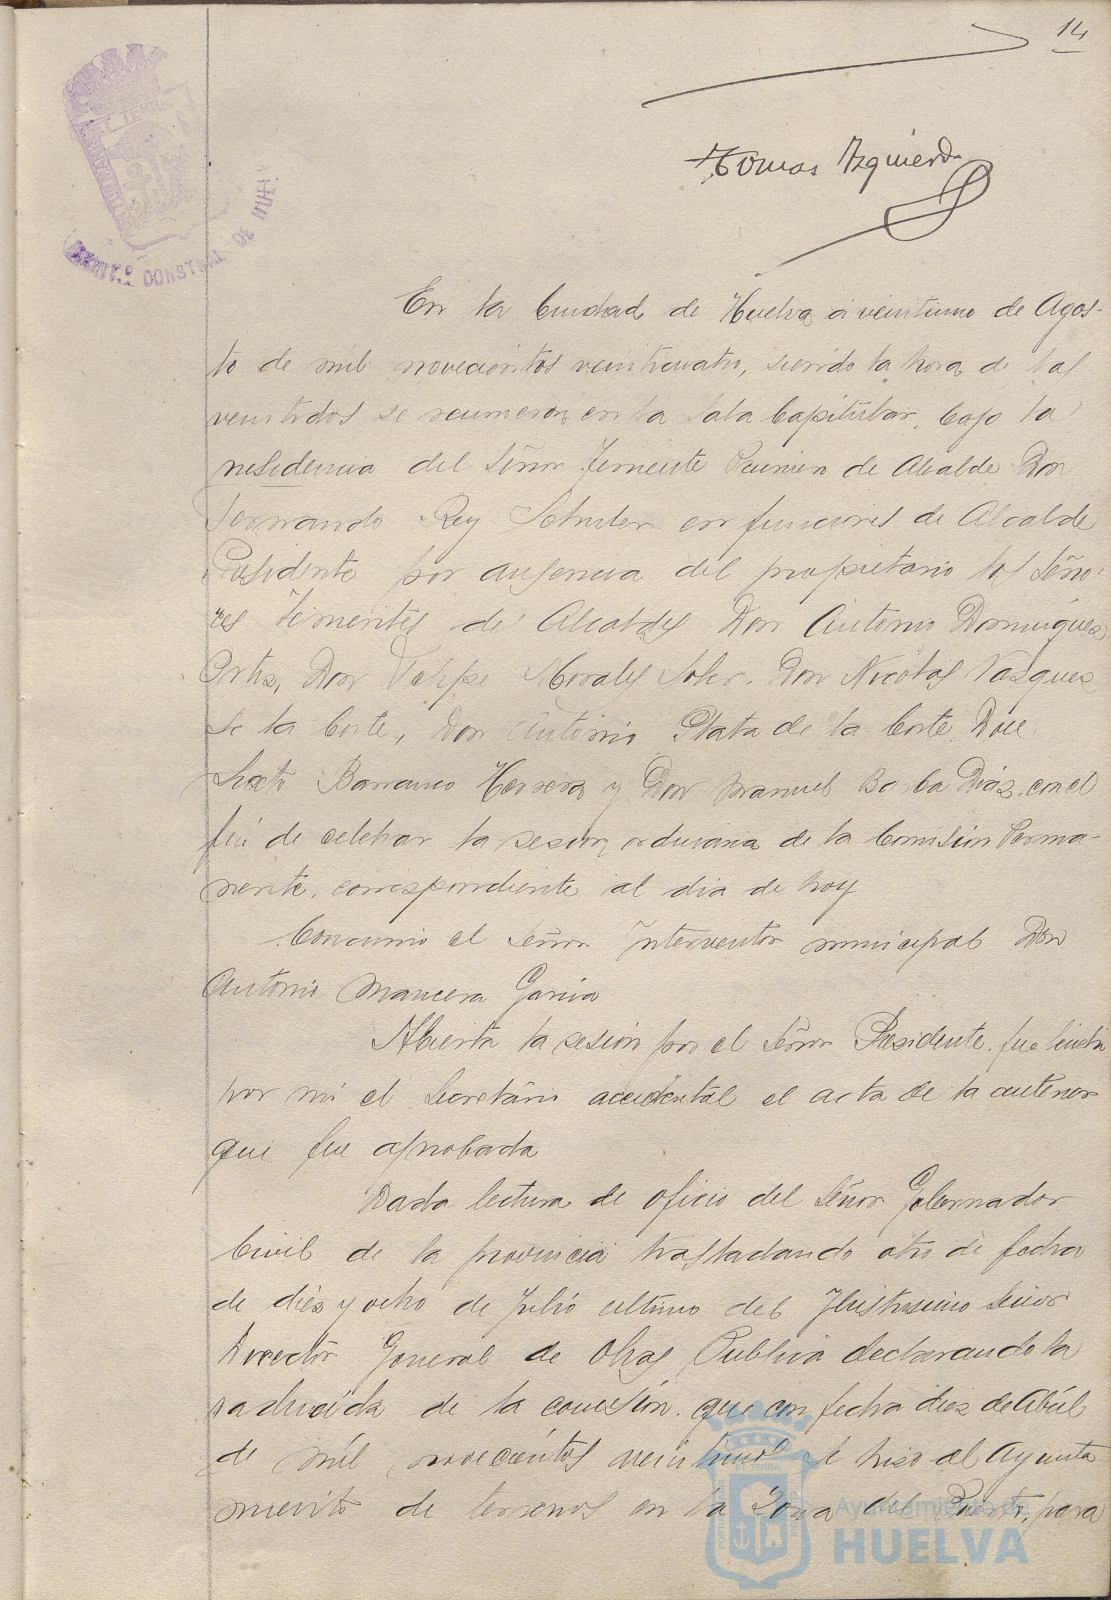 14
Tomas Izquierdo
En la Ciudad de Huelva a veintiuno de Agos-
to de mil novecientos veinticuatro, siendo la hora de las
veintidos se reunieron en la Sala Capitular, bajo la
presidencia del Señor Teniente Primero de Alcalde Don
Fernando Rey en funciones de Alcalde
Presidente por ausencia del propietario los Seño-
res Tenientes de Alcaldes Don Antonio Dominguez
Ortiz, Don Felipe Morales Soler, Don Nicolas Vazquez
de la Corte, Don Antonio Plata de la Corte,
Sixto Barranco Herrera y Don Manuel Barba Diaz, con el
fin de celebrar la sesion ordinaria de la Comisión Perma-
nente, correspondiente al dia de hoy
Concurrio el Señor Interventor municipal Don
Antonio Mancera Garcia
Abierta la sesión por el Señor Presidente, fue leida
por mi el Secretario accidental el acta de la anterior
que fue aprobada
Dada lectura de oficio del Señor Gobernador
Civil de la provincia trasladando otro de fecha
de diez y ocho de Julio ultimo del Ilustrisimo Señor
Director General de Obras Publica declarando la
caducidad de la concesión que con fecha diez de Abril
de mil novecientos veintiuno se hizo al Ayunta
miento de terrenos en la Zona del Puerto, para
Ayuntamiento de
HUELVA